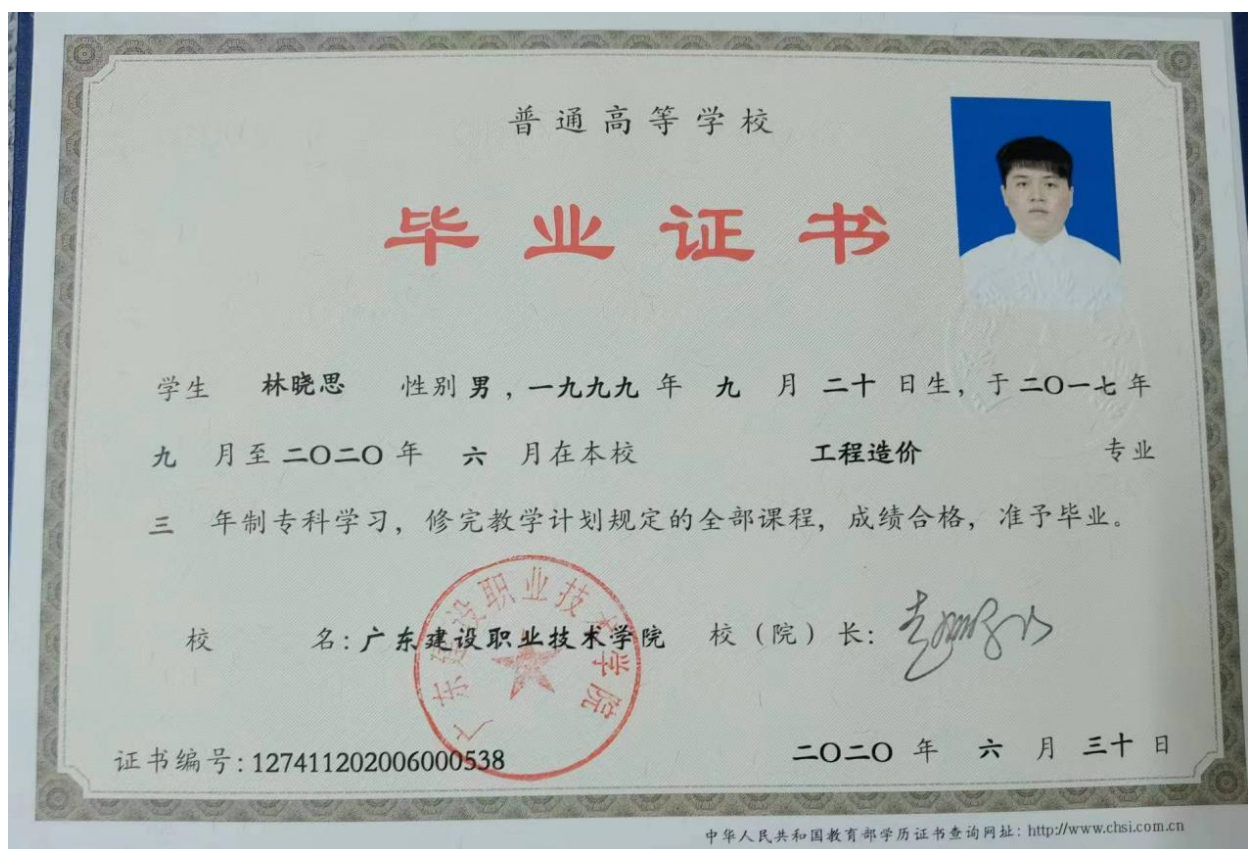 普通高等学校
毕业证书
学生 林晓思 性别 男，一九九九 年 九 月 二十 日生，于 二〇一七 年
九 月至 二〇二〇 年 六 月在本校 工程造价 专业
三 年制专科学习，修完教学计划规定的全部课程，成绩合格，准予毕业。
广东建设职业技术学院
校 名：广东建设职业技术学院 校（院）长：
证书编号：127411202006000538 二〇二〇 年 六 月 三十 日
中华人民共和国教育部学历证书查询网址：http://www.chsi.com.cn